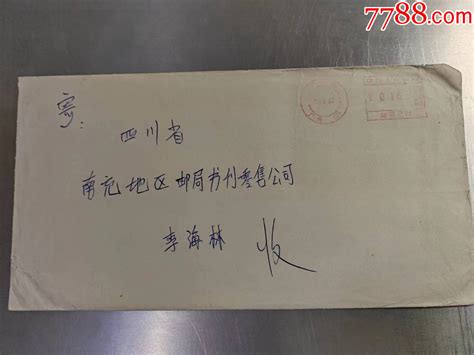 7788.com
寄：
四川省
南充地区邮局书刊零售公司
李海林 收